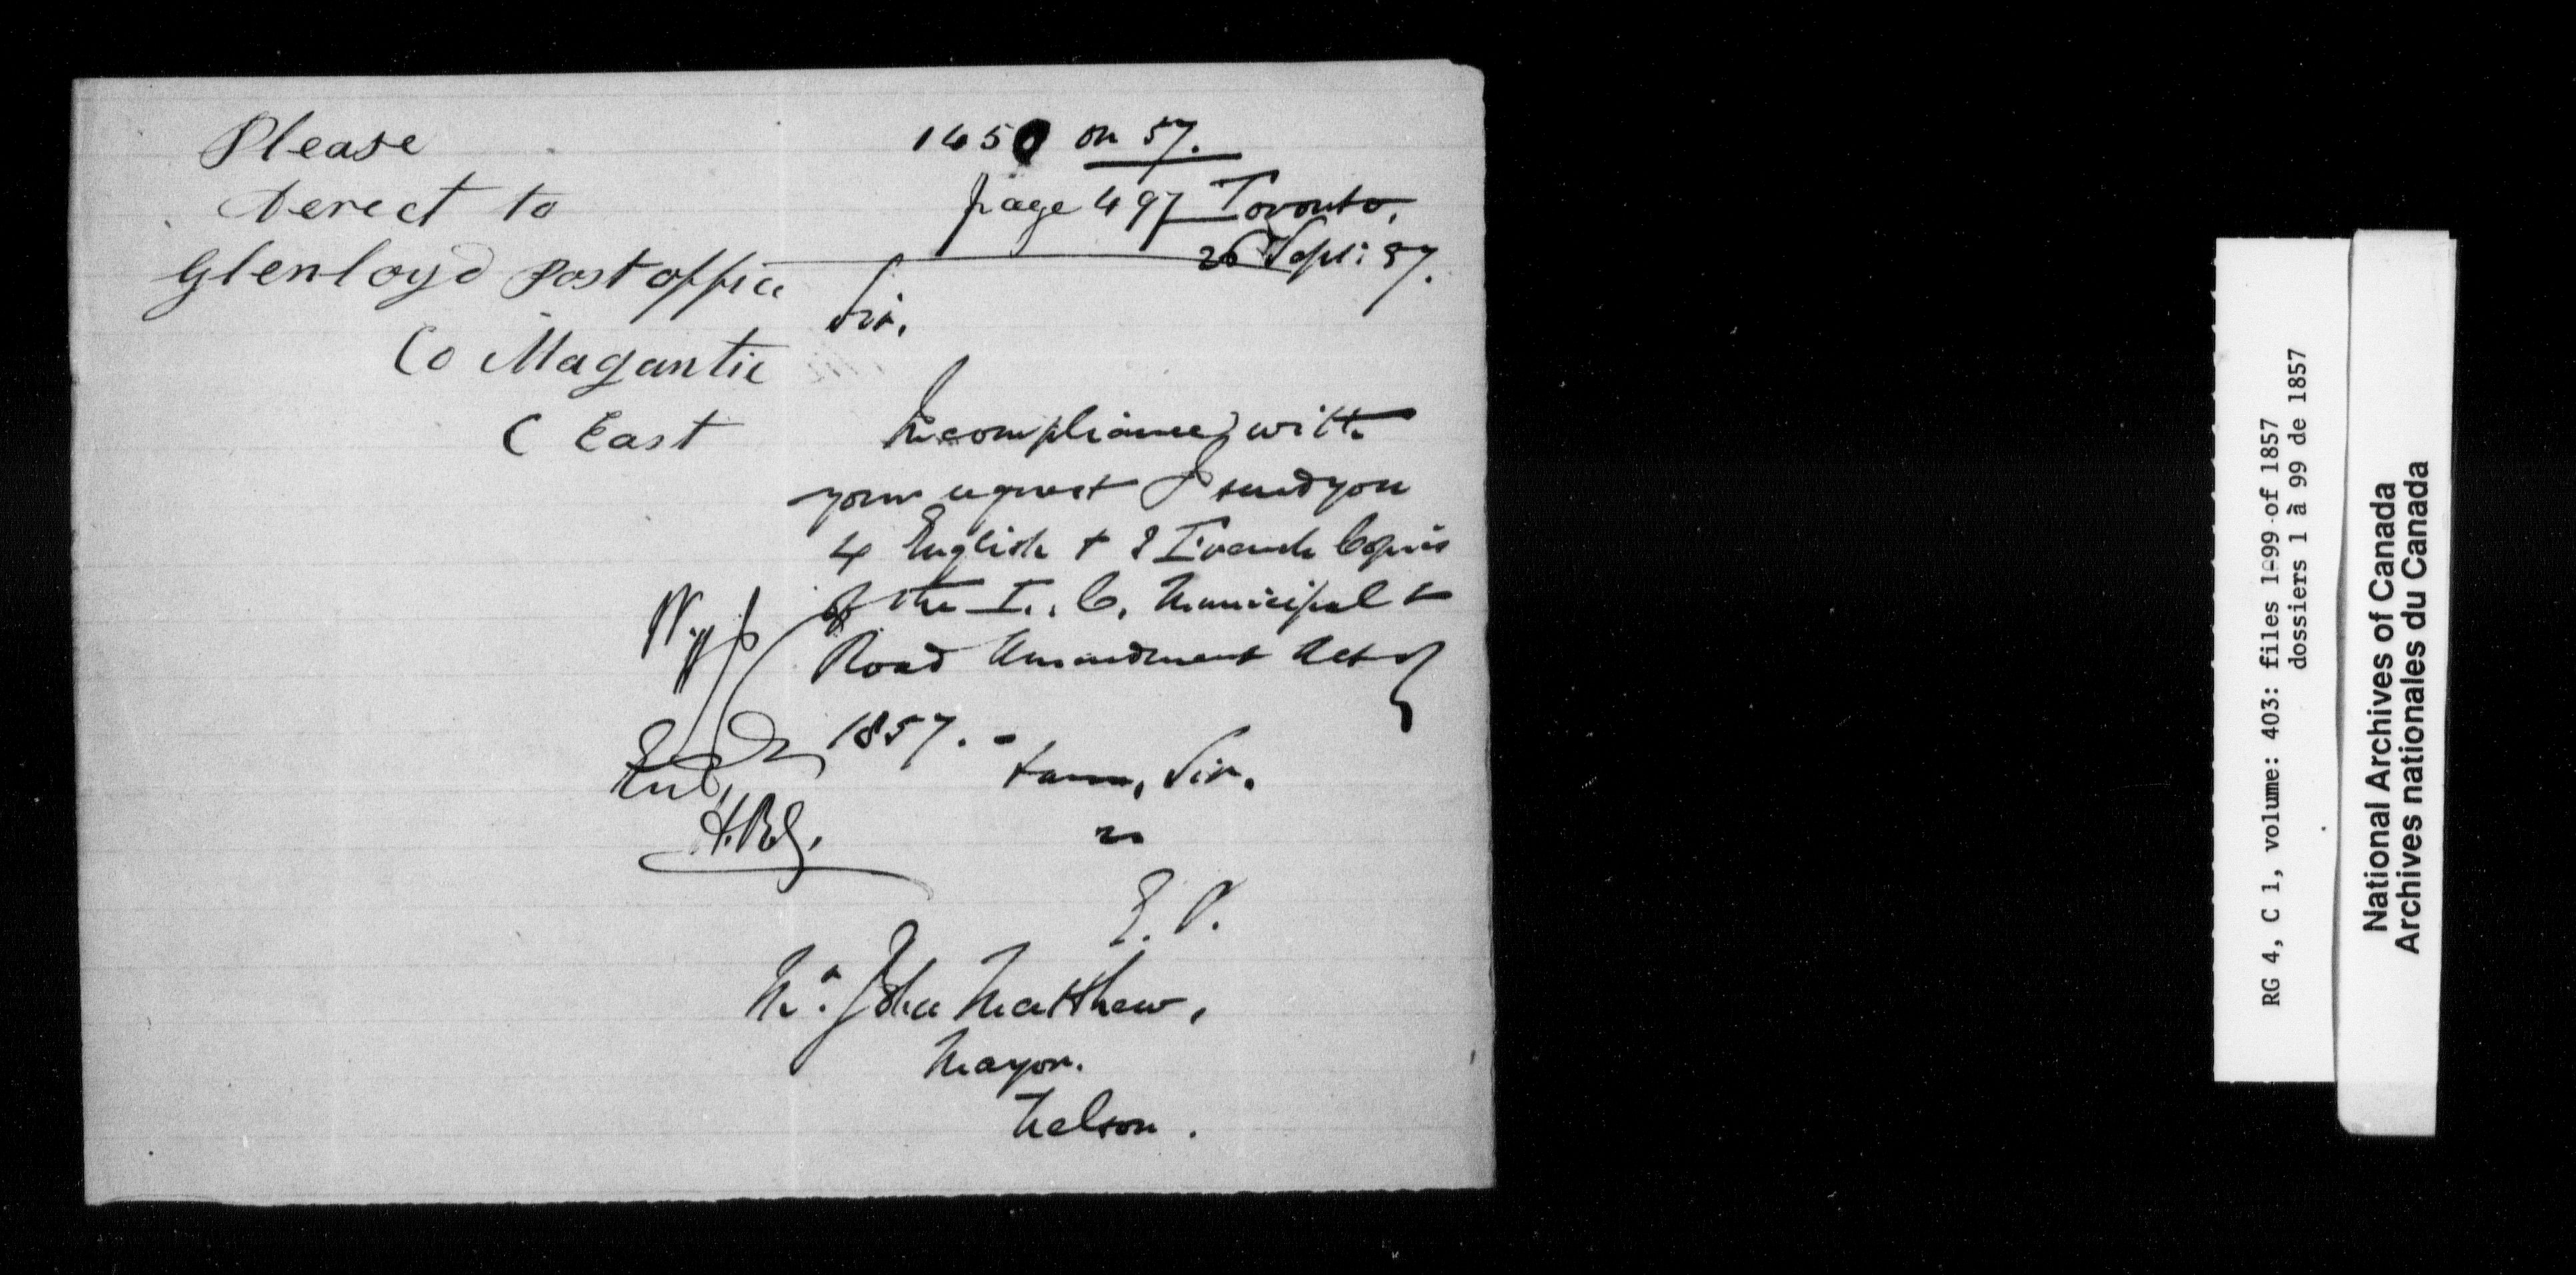 Please
Derect to
Glenloyd Post office
Co Magantic
C East
1450 on 57.
page 497 Toronto,
26 Sept: 57.
Sir,
In compliance with
your request I send you
4 English & 2 French Copies
of the L. C. Municipal &
Road Amendment Act of
1857. -
Sir.
E. P.
Mr. John Matthew,
Mayor.
Nelson.
RG 4, C 1, volume: 403: files 1-99 of 1857
dossiers 1 à 99 de 1857
National Archives of Canada
Archives nationales du Canada